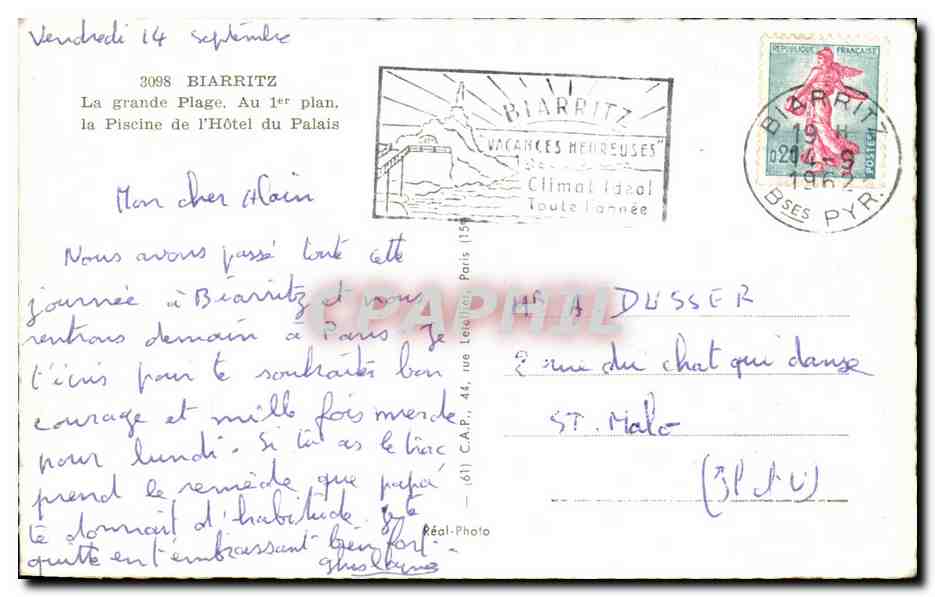 Vendredi 14 septembre
3098 BIARRITZ
La grande Plage. Au 1er plan,
la Piscine de l'Hôtel du Palais
BIARRITZ
"VACANCES HEUREUSES"
Climat Idéal
Toute l'année
REPUBLIQUE FRANÇAISE
0,20
POSTES
BIARRITZ
19 H
14-9
1962
Bses PYR.
Mon cher Alain
Nous avons passé toute cette
journée à Biarritz et nous
rentrons demain à Paris. Je
t'écris pour te souhaiter bon
courage et mille fois merde
pour lundi. Si tu as le trac
prend le remède que papa
te donnait d'habitude. Je te
quitte en t'embrassant bien fort.
Ghislaine
CPAPHIL
Mr A DUSSER
2 rue du chat qui danse
ST. Malo
(I et V)
(61) C.A.P., 44, rue Letellier, Paris (15e
Réal-Photo